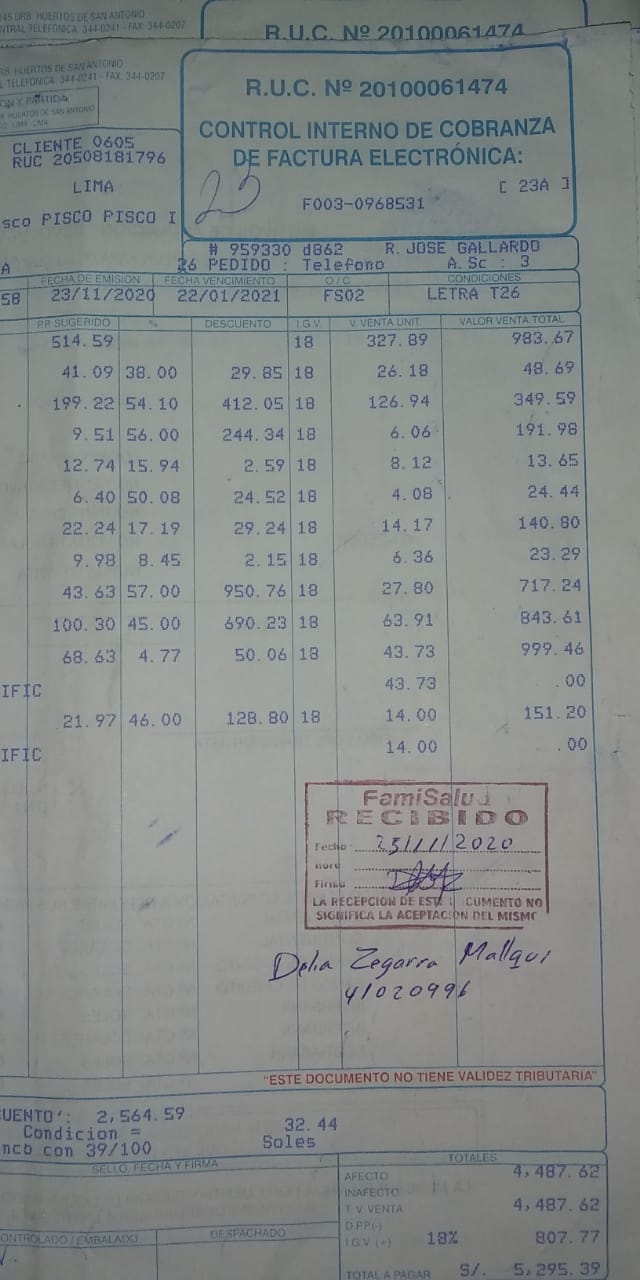 145 URB. HUERTOS DE SAN ANTONIO
CENTRAL TELEFÓNICA: 344-0241 - FAX: 344-0207
R.U.C. Nº 20100061474
RB. HUERTOS DE SAN ANTONIO
L TELEFÓNICA: 344-0241 - FAX: 344-0207
R.U.C. Nº 20100061474
ON Y PARTIDA
HUERTOS DE SAN ANTONIO
LIMA - LIMA
CONTROL INTERNO DE COBRANZA
DE FACTURA ELECTRÓNICA:
CLIENTE 0605
RUC 20508181796
LIMA
23
[ 23A ]
F003-0968531
sco PISCO PISCO I
# 959330 d862 R. JOSE GALLARDO
A 26 PEDIDO : Telefono A. Sc : 3
FECHA DE EMISION FECHA VENCIMIENTO O / C CONDICIONES
58 23/11/2020 22/01/2021 FS02 LETRA T26
P.P. SUGERIDO % DESCUENTO I.G.V. V. VENTA UNIT. VALOR VENTA TOTAL
514.59 18 327.89 983.67
41.09 38.00 29.85 18 26.18 48.69
199.22 54.10 412.05 18 126.94 349.59
9.51 56.00 244.34 18 6.06 191.98
12.74 15.94 2.59 18 8.12 13.65
6.40 50.08 24.52 18 4.08 24.44
22.24 17.19 29.24 18 14.17 140.80
9.98 8.45 2.15 18 6.36 23.29
43.63 57.00 950.76 18 27.80 717.24
100.30 45.00 690.23 18 63.91 843.61
68.63 4.77 50.06 18 43.73 999.46
IFIC 43.73 .00
21.97 46.00 128.80 18 14.00 151.20
IFIC 14.00 .00
FamiSalud
RECIBIDO
Fecha 25/11/2020
Hora
Firma
LA RECEPCIÓN DE ESTE CUMENTO NO
SIGNIFICA LA ACEPTACIÓN DEL MISMO
Delia Zegarra Mallqui
41020996
"ESTE DOCUMENTO NO TIENE VALIDEZ TRIBUTARIA"
CUENTO': 2,564.59 32.44
Condicion = Soles
nco con 39/100
SELLO, FECHA Y FIRMA
TOTALES
AFECTO 4,487.62
INAFECTO
T. V. VENTA 4,487.62
D.PP(-)
I.G.V. (+) 18% 807.77
TOTAL A PAGAR S/. 5,295.39
CONTROLADO / EMBALADO DESPACHADO